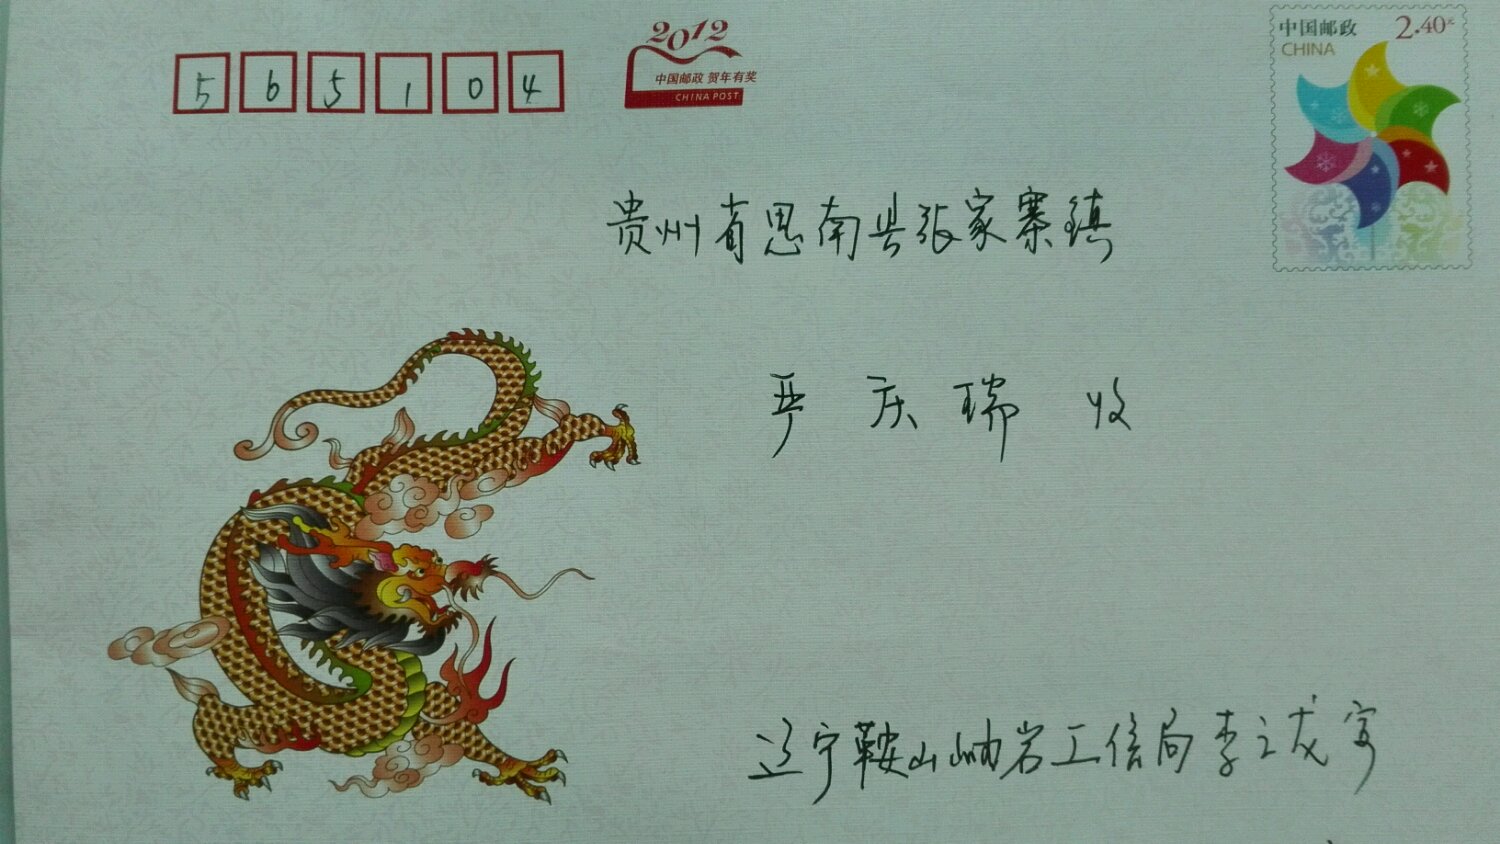 565104
2012
中国邮政 贺年有奖
CHINA POST
中国邮政 2.40元
CHINA
贵州省思南县张家寨镇
严庆瑞 收
辽宁鞍山岫岩工信局李之戊寄